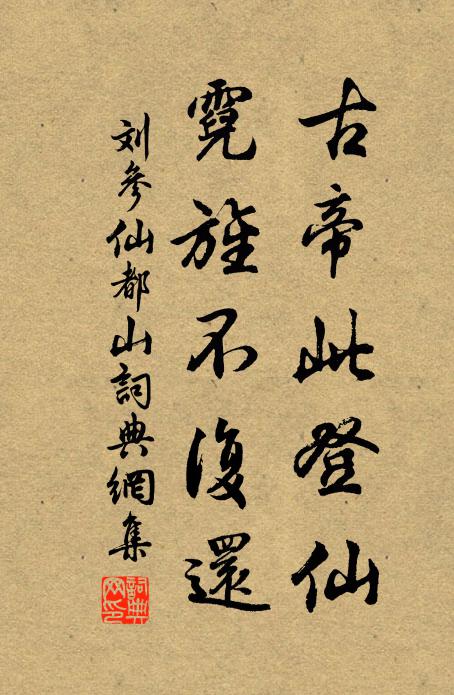 古帝此登仙
霓旌不復還
刘參仙都山詞典網集
詞典网印